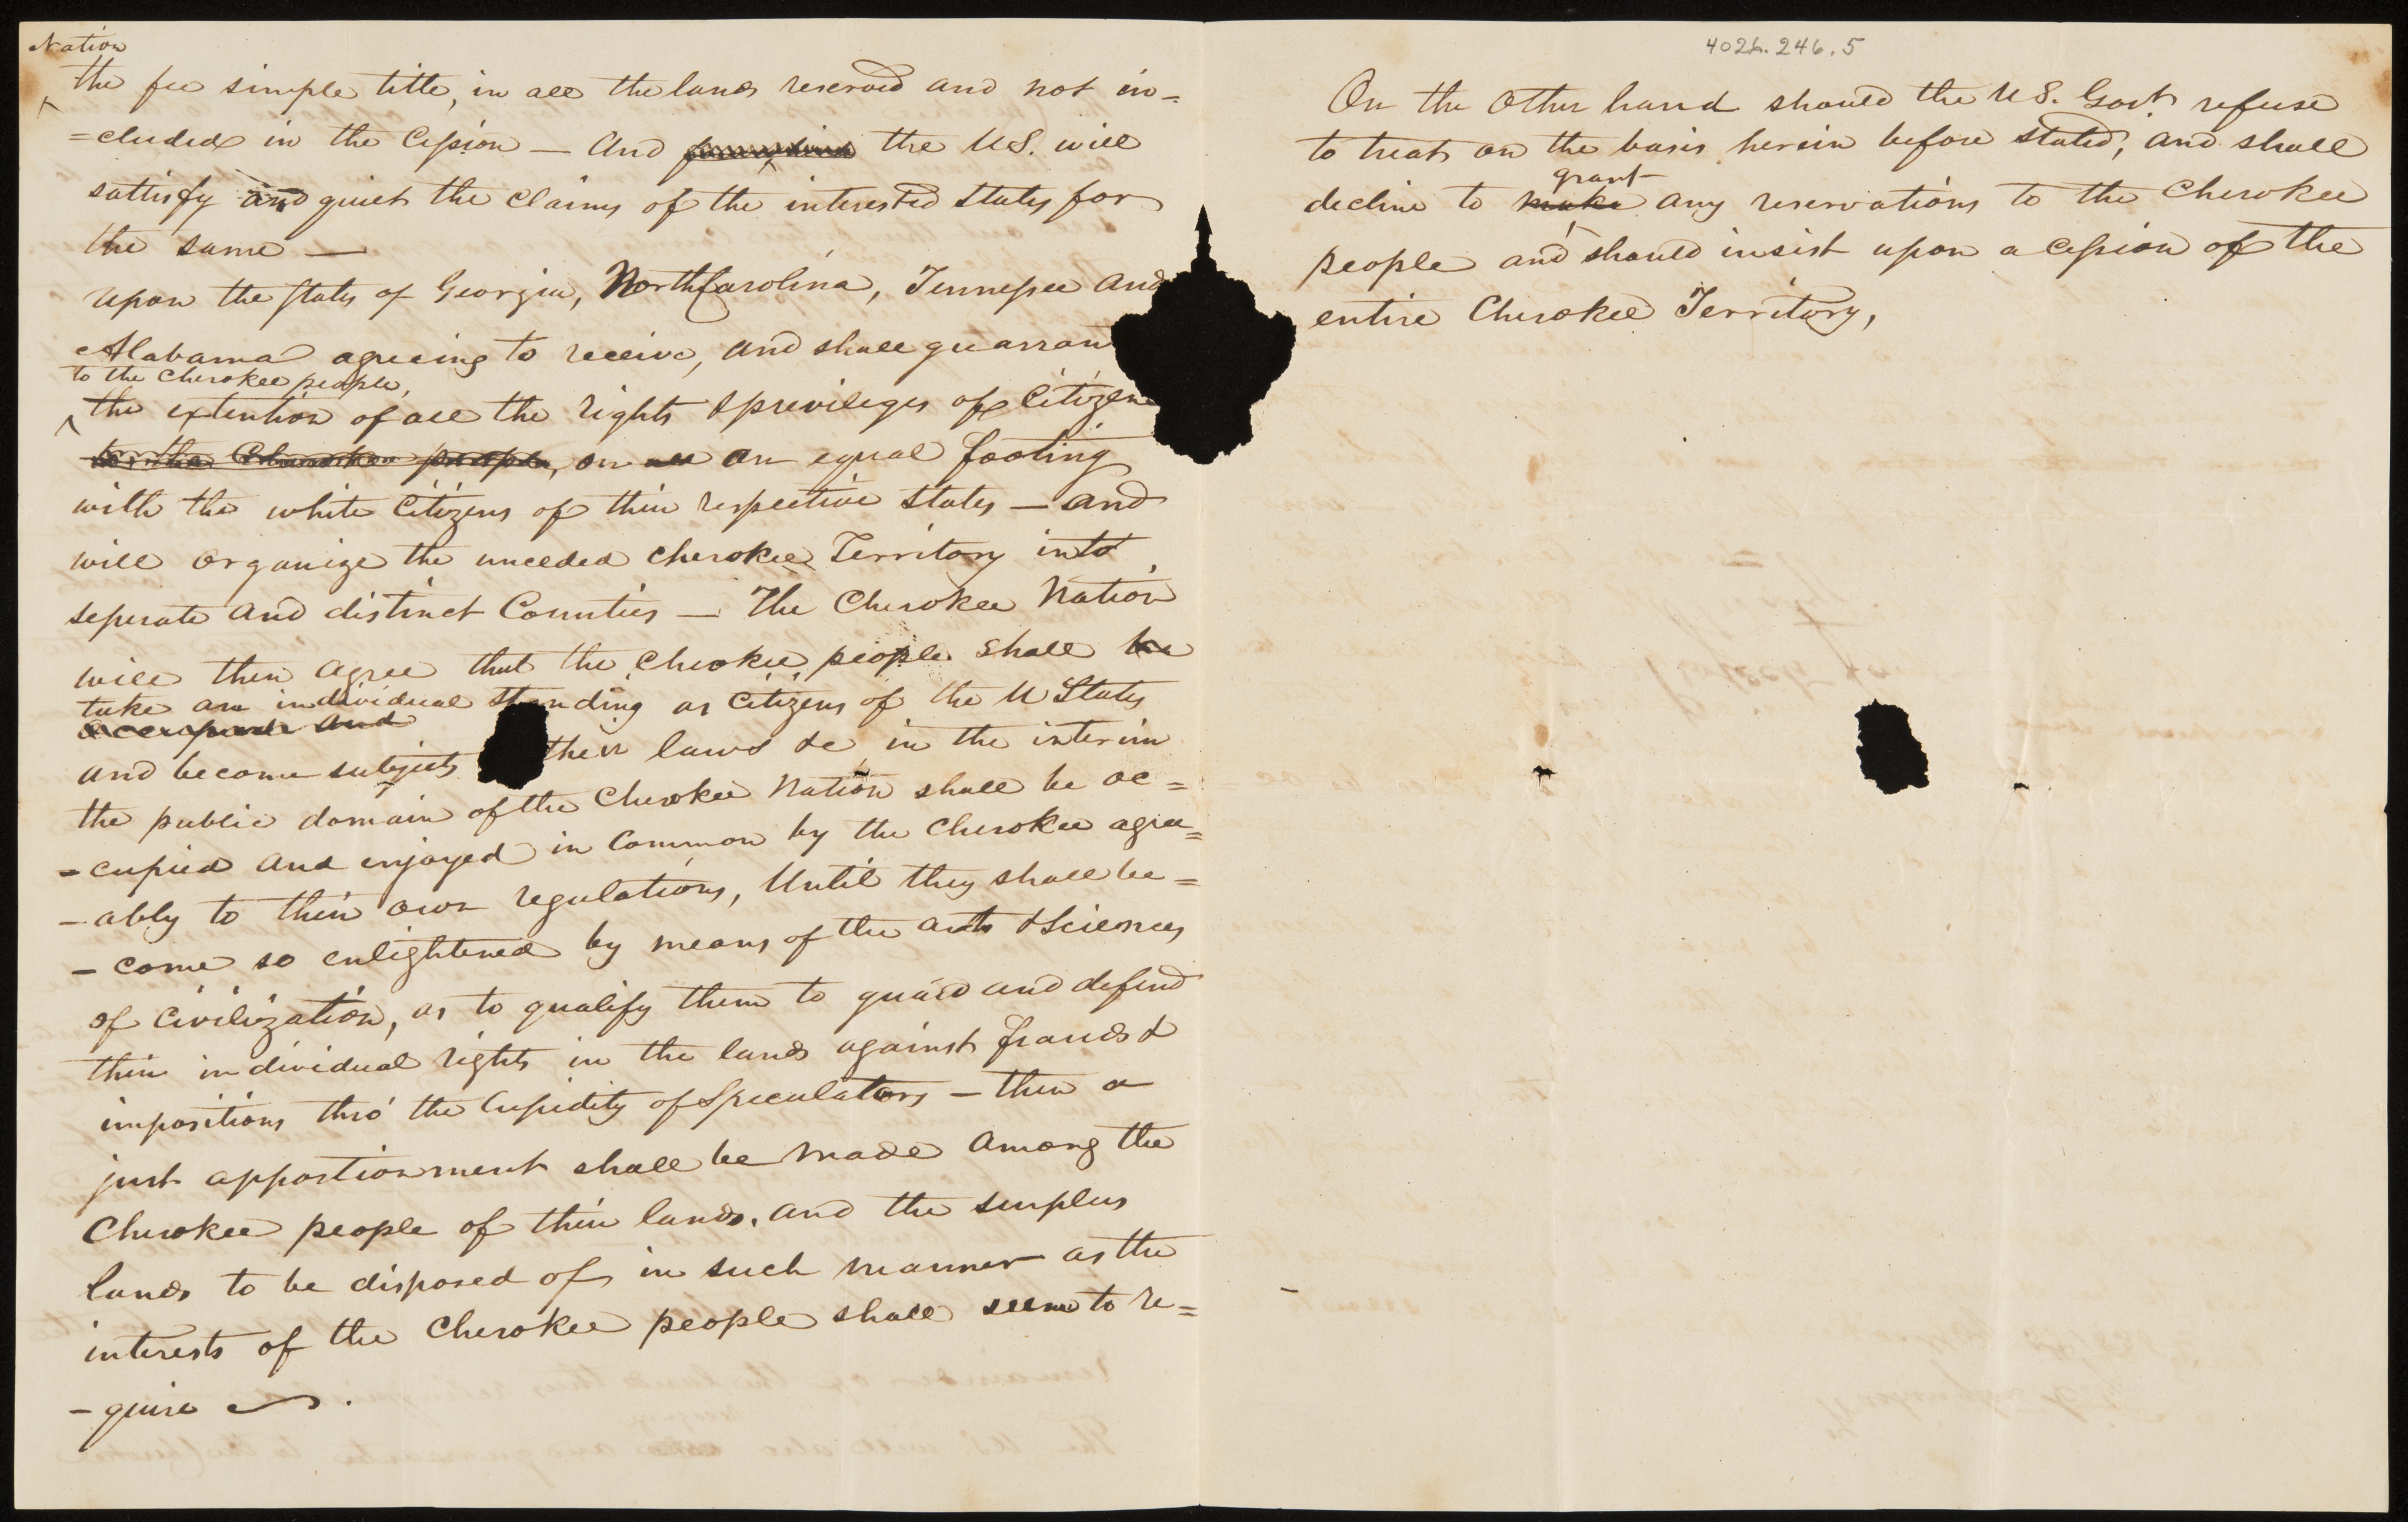 Nation
the fee simple title, in all the lands reserved and not in=
=cluded in the Cession — And the U.S. will
sattisfy and quiet the claims of the interested States for
the same —
upon the States of Georgia, North Carolina, Tennessee and
Alabama agreeing to receive, and shall guarran
to the Cherokee people,
the extention of all the rights & previleges of Citizens
to the Cherokee people, on all an equal footing
with the white Citizens of their respective States — and
will organize the unceded Cherokee Territory into
seperate and distinct Counties — The Cherokee Nation
will then agree that the Cherokee people shall be
take an individual standing as Citizens of the U States
and
and become subjects their laws &c in the interim
the public domain of the Cherokee Nation shall be oc=
-cupied and enjoyed in Common by the Cherokee agree=
-ably to their own regulations, Until they shall be=
-come so enlightened by means of the arts & Sciences
of Civilization, as to qualify them to guard and defend
their individual rights in the lands against frauds &
impositions thro' the Cupidity of Speculators — then a
just apportionment shall be made among the
Cherokee people of their lands, and the surplus
lands to be disposed of in such manner as the
interests of the Cherokee people shall seem to re=
-quire .
4026.246.5
On the Other hand should the U.S. Govt. refuse
to treat on the basis herein before stated, and shall
grant
decline to make any reservations to the Cherokee
people and should insist upon a Cession of the
entire Cherokee Territory,